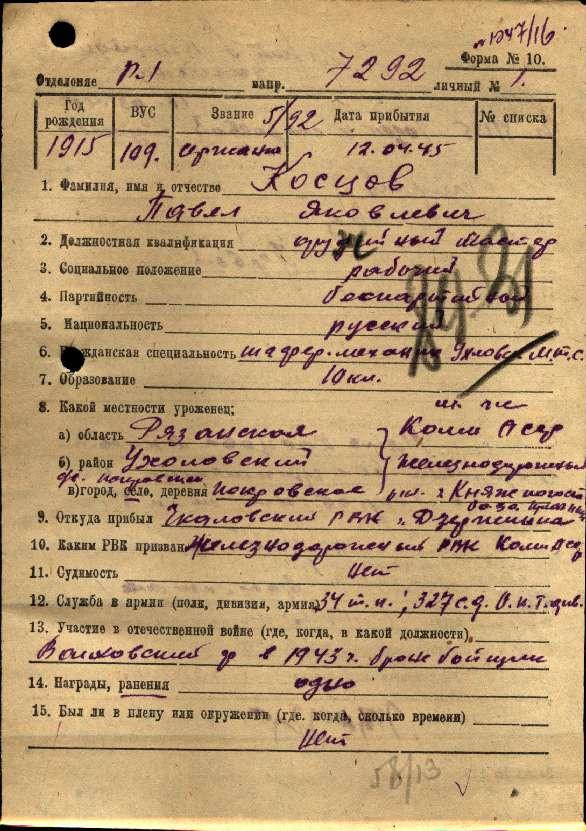 1247/16
Форма № 10.
Отделение Р-1 напр. 7292 личный № 1.
Год рождения ВУС Звание 5/92 Дата прибытия № списка
1915 109. сержант 12.04.45
1. Фамилия, имя и отчество Косцов
Павел Яковлевич
2. Должностная квалификация орудийный мастер
3. Социальное положение рабочий
4. Партийность беспартийной
5. Национальность русский
6. Гражданская специальность шофер-механик М.т.с.
7. Образование 10 кл.
8. Какой местности уроженец; м. ж
а) область Рязанской Коми Асср
б) район Ухоловский Железнодорожный
с. Покровское
в) город, село, деревня Покровское Княжпогост
9. Откуда прибыл Чкаловский РВК г. Дзержинска
10. Каким РВК призван Железнодорожный РВК Коми Асср
11. Судимость Нет
12. Служба в армии (полк, дивизия, армия) 54 т.п.; 327 с.д.
13. Участие в отечественной войне (где, когда, в какой должности).
Волховский ф в 1943 г. бронебойщик
14. Награды, ранения одно
15. Был ли в плену или окружении (где. когда, сколько времени)
Нет
58/13